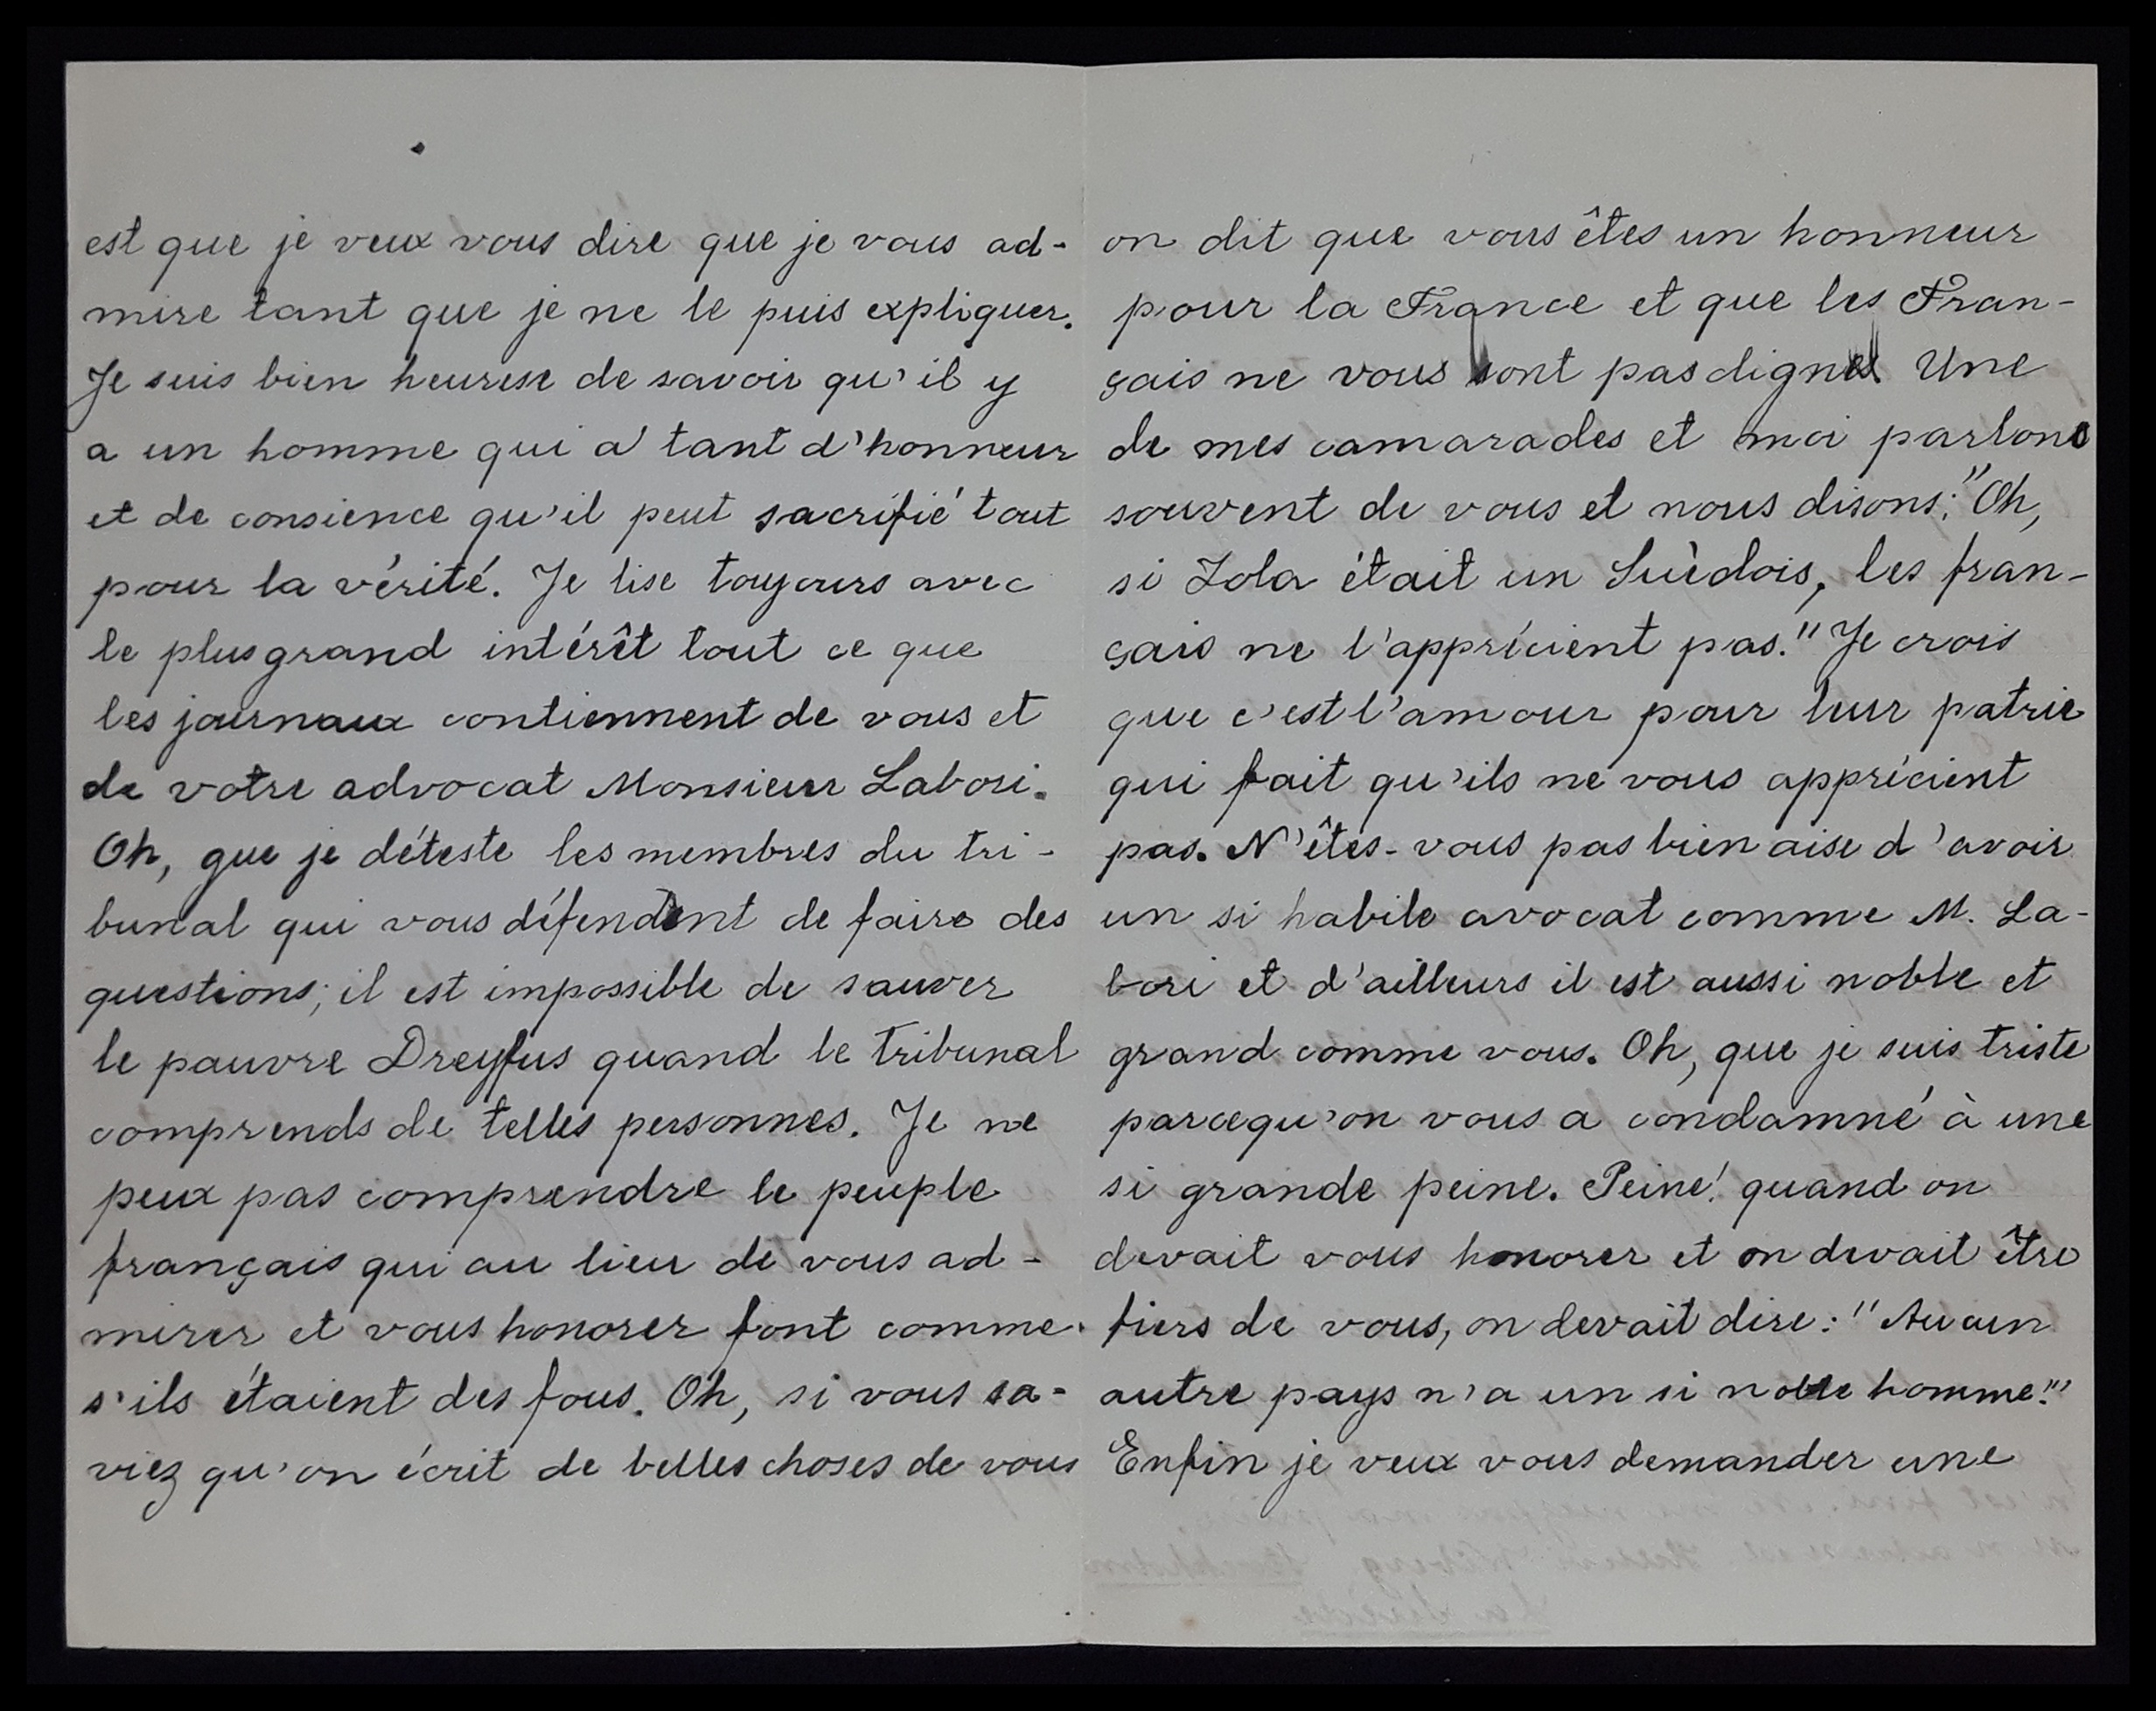 est que je veux vous dire que je vous ad-
mire tant que je ne le puis expliquer.
Je suis bien heurese de savoir qu'il y
a un homme qui a tant d'honneur
et de consience qu'il peut sacrifié tout
pour la vérité. Je lise toujours avec
le plus grand intérêt tout ce que
les journaux contiennent de vous et
de votre advocat Monsieur Labori.
Oh, que je déteste les membres du tri-
bunal qui vous défendent de faire des
questions; il est impossible de sauver
le pauvre Dreyfus quand le tribunal
comprends de telles personnes. Je ne
peux pas comprendre le peuple
français qui au lieu de vous ad-
mirer et vous honorer font comme
s'ils étaient des fous. Oh, si vous sa-
viez qu'on écrit de belles choses de vous
on dit que vous êtes un honneur
pour la France et que les Fran-
çais ne vous sont pas dignes. Une
de mes camarades et moi parlons
souvent de vous et nous disons: "Oh,
si Zola était un Suèdois, les fran-
çais ne l'apprécient pas." Je crois
que c'est l'amour pour leur patrie
qui fait qu'ils ne vous apprécient
pas. N'êtes-vous pas bien aise d'avoir
un si habile avocat comme M. La-
bori et d'ailleurs il est aussi noble et
grand comme vous. Oh, que je suis triste
parcequ'on vous a condamné à une
si grande peine. Peine! quand on
devait vous honorer et on devait être
fiers de vous, on devait dire: "Aucun
autre pays n'a un si noble homme!"
Enfin je veux vous demander une